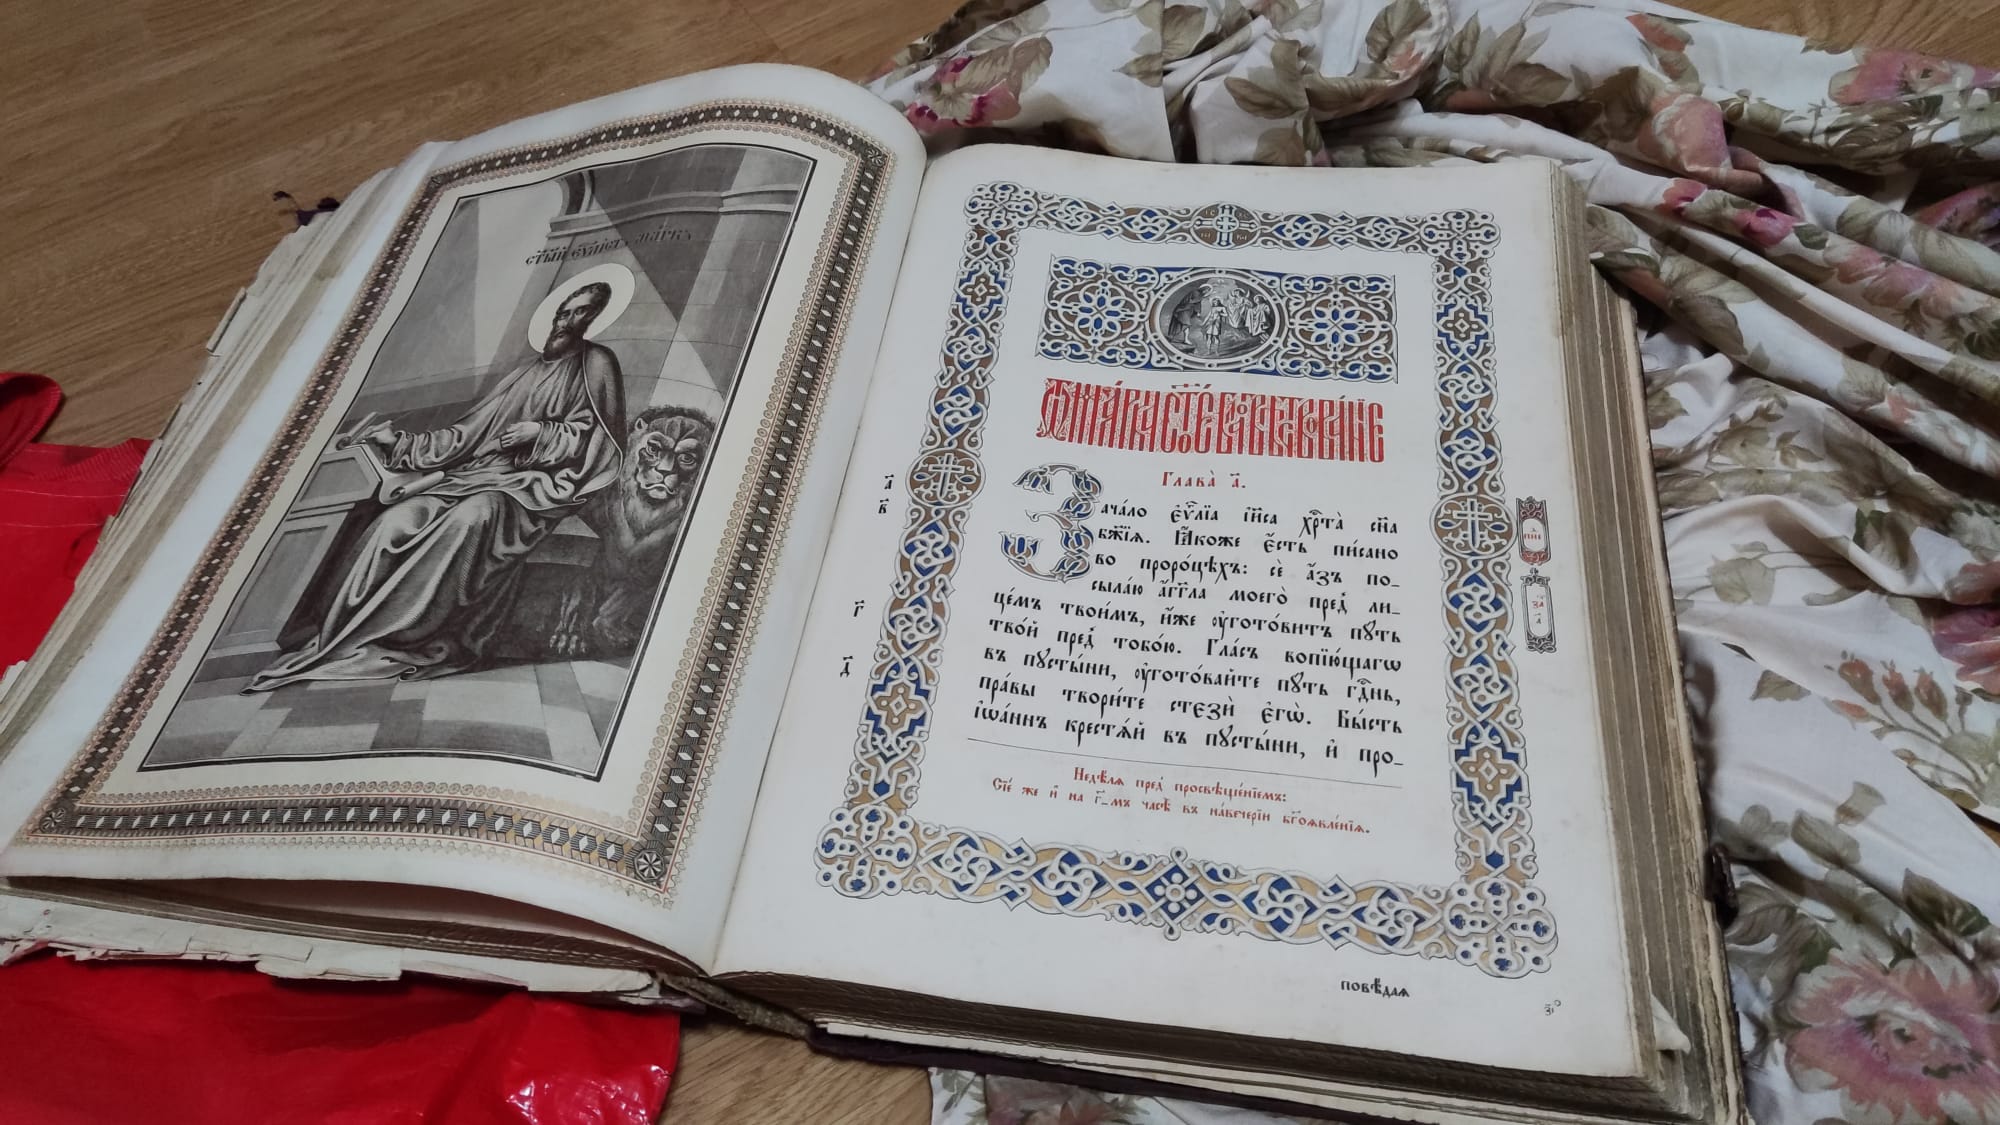 ст҃ый єѵⷢ҇листъ ма́ркъ
І҃С Х҃С
НИ КА
Ѿ ма́рка ст҃о́е бл҃говѣствова́нїе
Глава̀ а҃.
а҃
в҃
Зача́ло є҆ѵⷢ҇лїа і҆и҃са хрⷭ҇та̀ сн҃а
бж҃їѧ. Ꙗ҆́коже є҆́сть пи́сано
во проро́цѣхъ: сѐ а҆́зъ по-
сыла́ю а҆́гг҃ла моего̀ пред̾ ли-
це́мъ твои́мъ, и҆́же ᲂу҆гото́витъ пꙋть
г҃
тво́й пред̾ тобо́ю. Гла́съ вопїю́щагѡ
въ пꙋсты́ни, ᲂу҆гото́вайте пꙋть гдⷭ҇нь,
д҃
пра́вы твори́те стєзѝ є҆гѡ̀. Бы́сть
і҆ѡа́ннъ крестѧ́й въ пꙋсты́ни, и҆ про-
за
а҃
Недѣ́лѧ пред̾ просвѣще́нїемъ:
Сїе́ же и҆ на г҃-мъ часѣ̀ въ наве́черїи бг҃оѧвле́нїѧ.
повѣ́даѧ